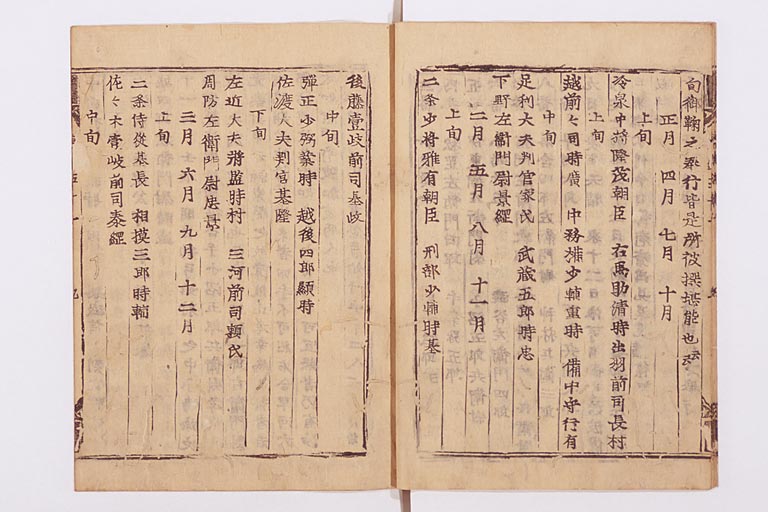 向御鞠之奉行皆是所被撰堪能也云云
正月 四月 七月 十月
上旬
冷泉中將隆茂朝臣 右馬助清時 出羽前司長村
上旬
越前々司時廣 中務權少輔重時 備中守行有
中旬
足利大夫判官家氏 武藏五郎時忠
下野左衞門尉景經
二月 五月 八月 十一月
上旬
二条少將雅有朝臣 刑部少輔時基
後藤壹岐前司基政
中旬
彈正少弼業時 越後四郎顯時
佐渡大夫判官基隆
下旬
左近大夫將監時村 三河前司頼氏
周防左衞門尉忠景
三月 六月 九月 十二月
上旬
二条侍從基長 相摸三郎時輔
佐々木壹岐前司泰經
中旬